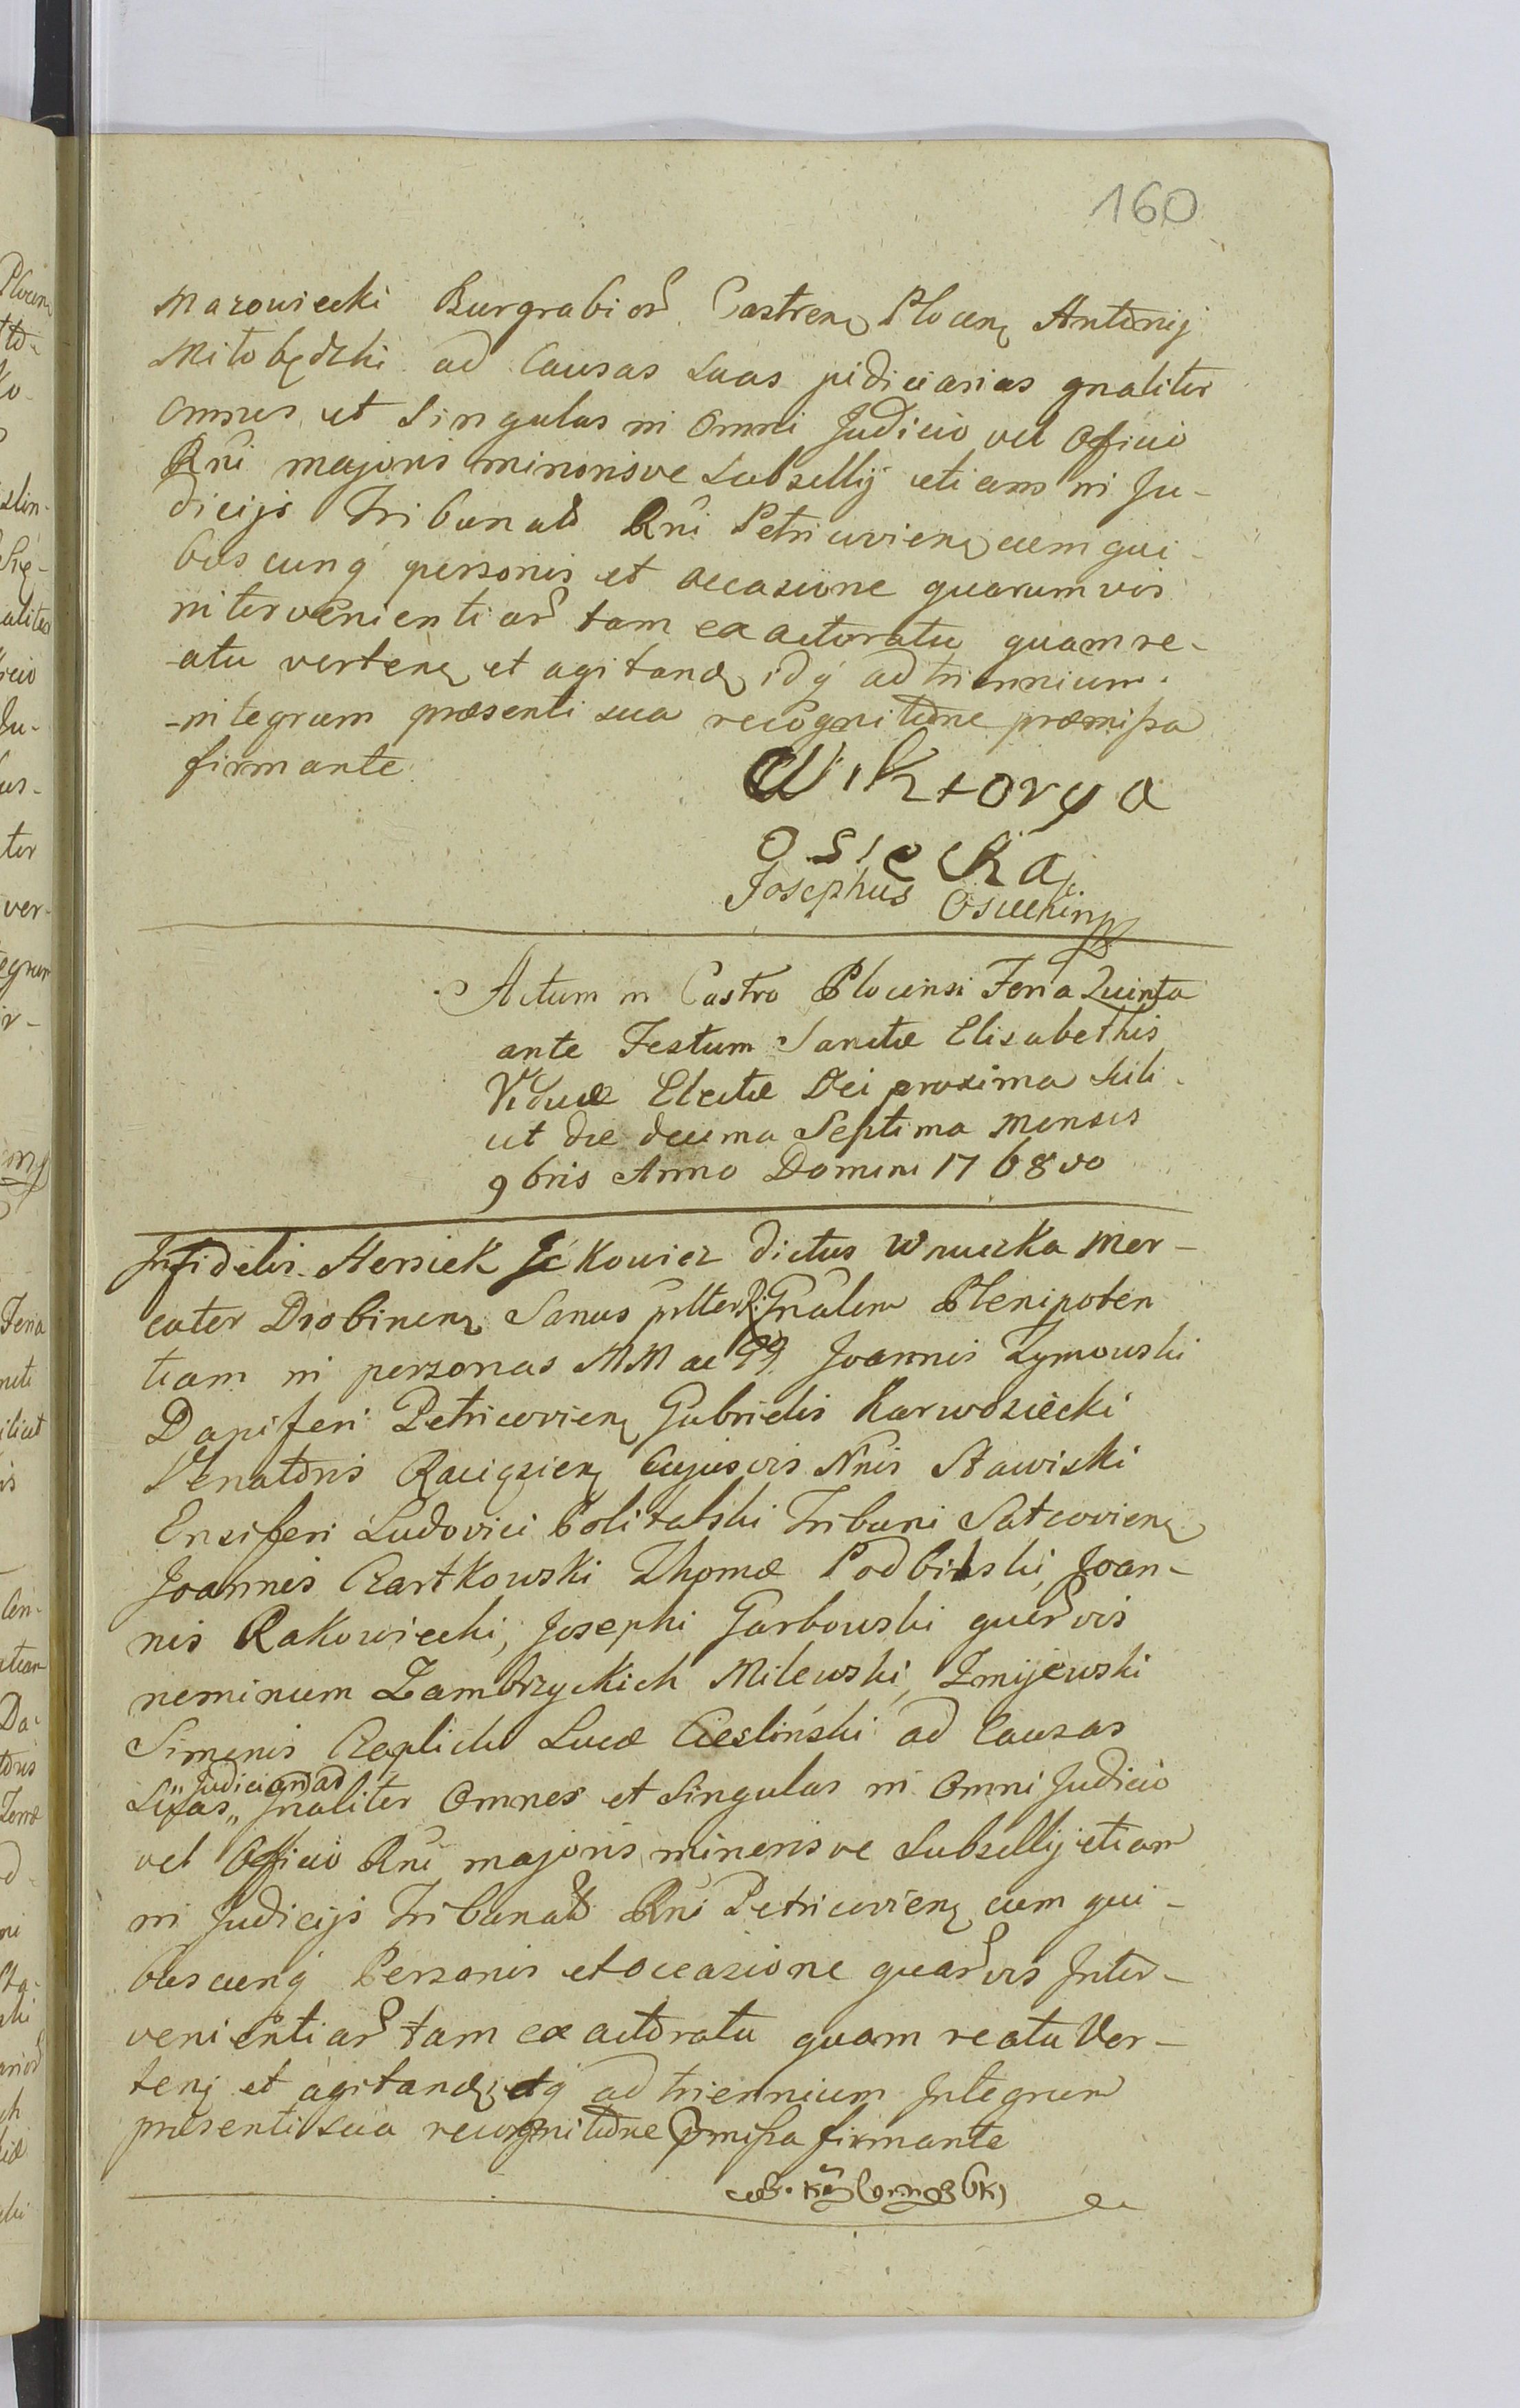 160
Mazowiecki Burgrabior Castren Plocen Antonij
Miłobędzki ad Causas suas judiciarias gnaliter
Omnes et Singulas in Omni Judicio vel Officio
Rni majoris minorisve Subsellij etiam in Ju-
dicijs Tribunal Rni Petricovien cum qui-
buscunq personis et occasione quarumvis
intervenientiar tam ex actoratu quam re-
-atu verten et agitand idq ad triennium
-integrum præsenti sua recognitione præmissa
firmante
Wiktorya
Osiecka
Josephus Osiecki mp
Actum in Castro Plocensi Feria Quinta
ante Festum Sanctæ Elisabethis
Viduæ Electæ Dei proxima Scili-
cet die decima Septima Mensis
9bris Anno Domini 1768vo
Infidelis Hersiek Jckowicz dictus Wnuczka Mer-
cator Drobinen Sanus Gnalem Plenipoten
tiam in personas MM ac GG Joannis Zymowski
Dapiferi Petricovien Gabrielis Karwosiecki
Venatoris Raciązien Cujusvis Nnis Stawiski
Ensiferi Ludovici Politalski Tribuni
Joannis Czartkowski Thomæ Podbilski, Joan-
nis Rakowiecki, Josephi Garbowski quervis
neminum Zambrzyckich Milewski, Zmijewski
Simonis Czaplicki Lucæ Ciesliński ad Causas
Judiciarias
Suas,, Gnaliter Omnes et Singulas in Omni Judicio
vel Officio Rni majoris, minorisve Subsellij etiam
in Judicijs Tribunal Rni Petricovien cum qui-
buscunq Personis et occasione quarvis Inter-
venientiar tam ex actoratu quam reatu Ver-
ten et agitand idq ad triennium Integrum
præsenti sua recognitione pmissa firmante